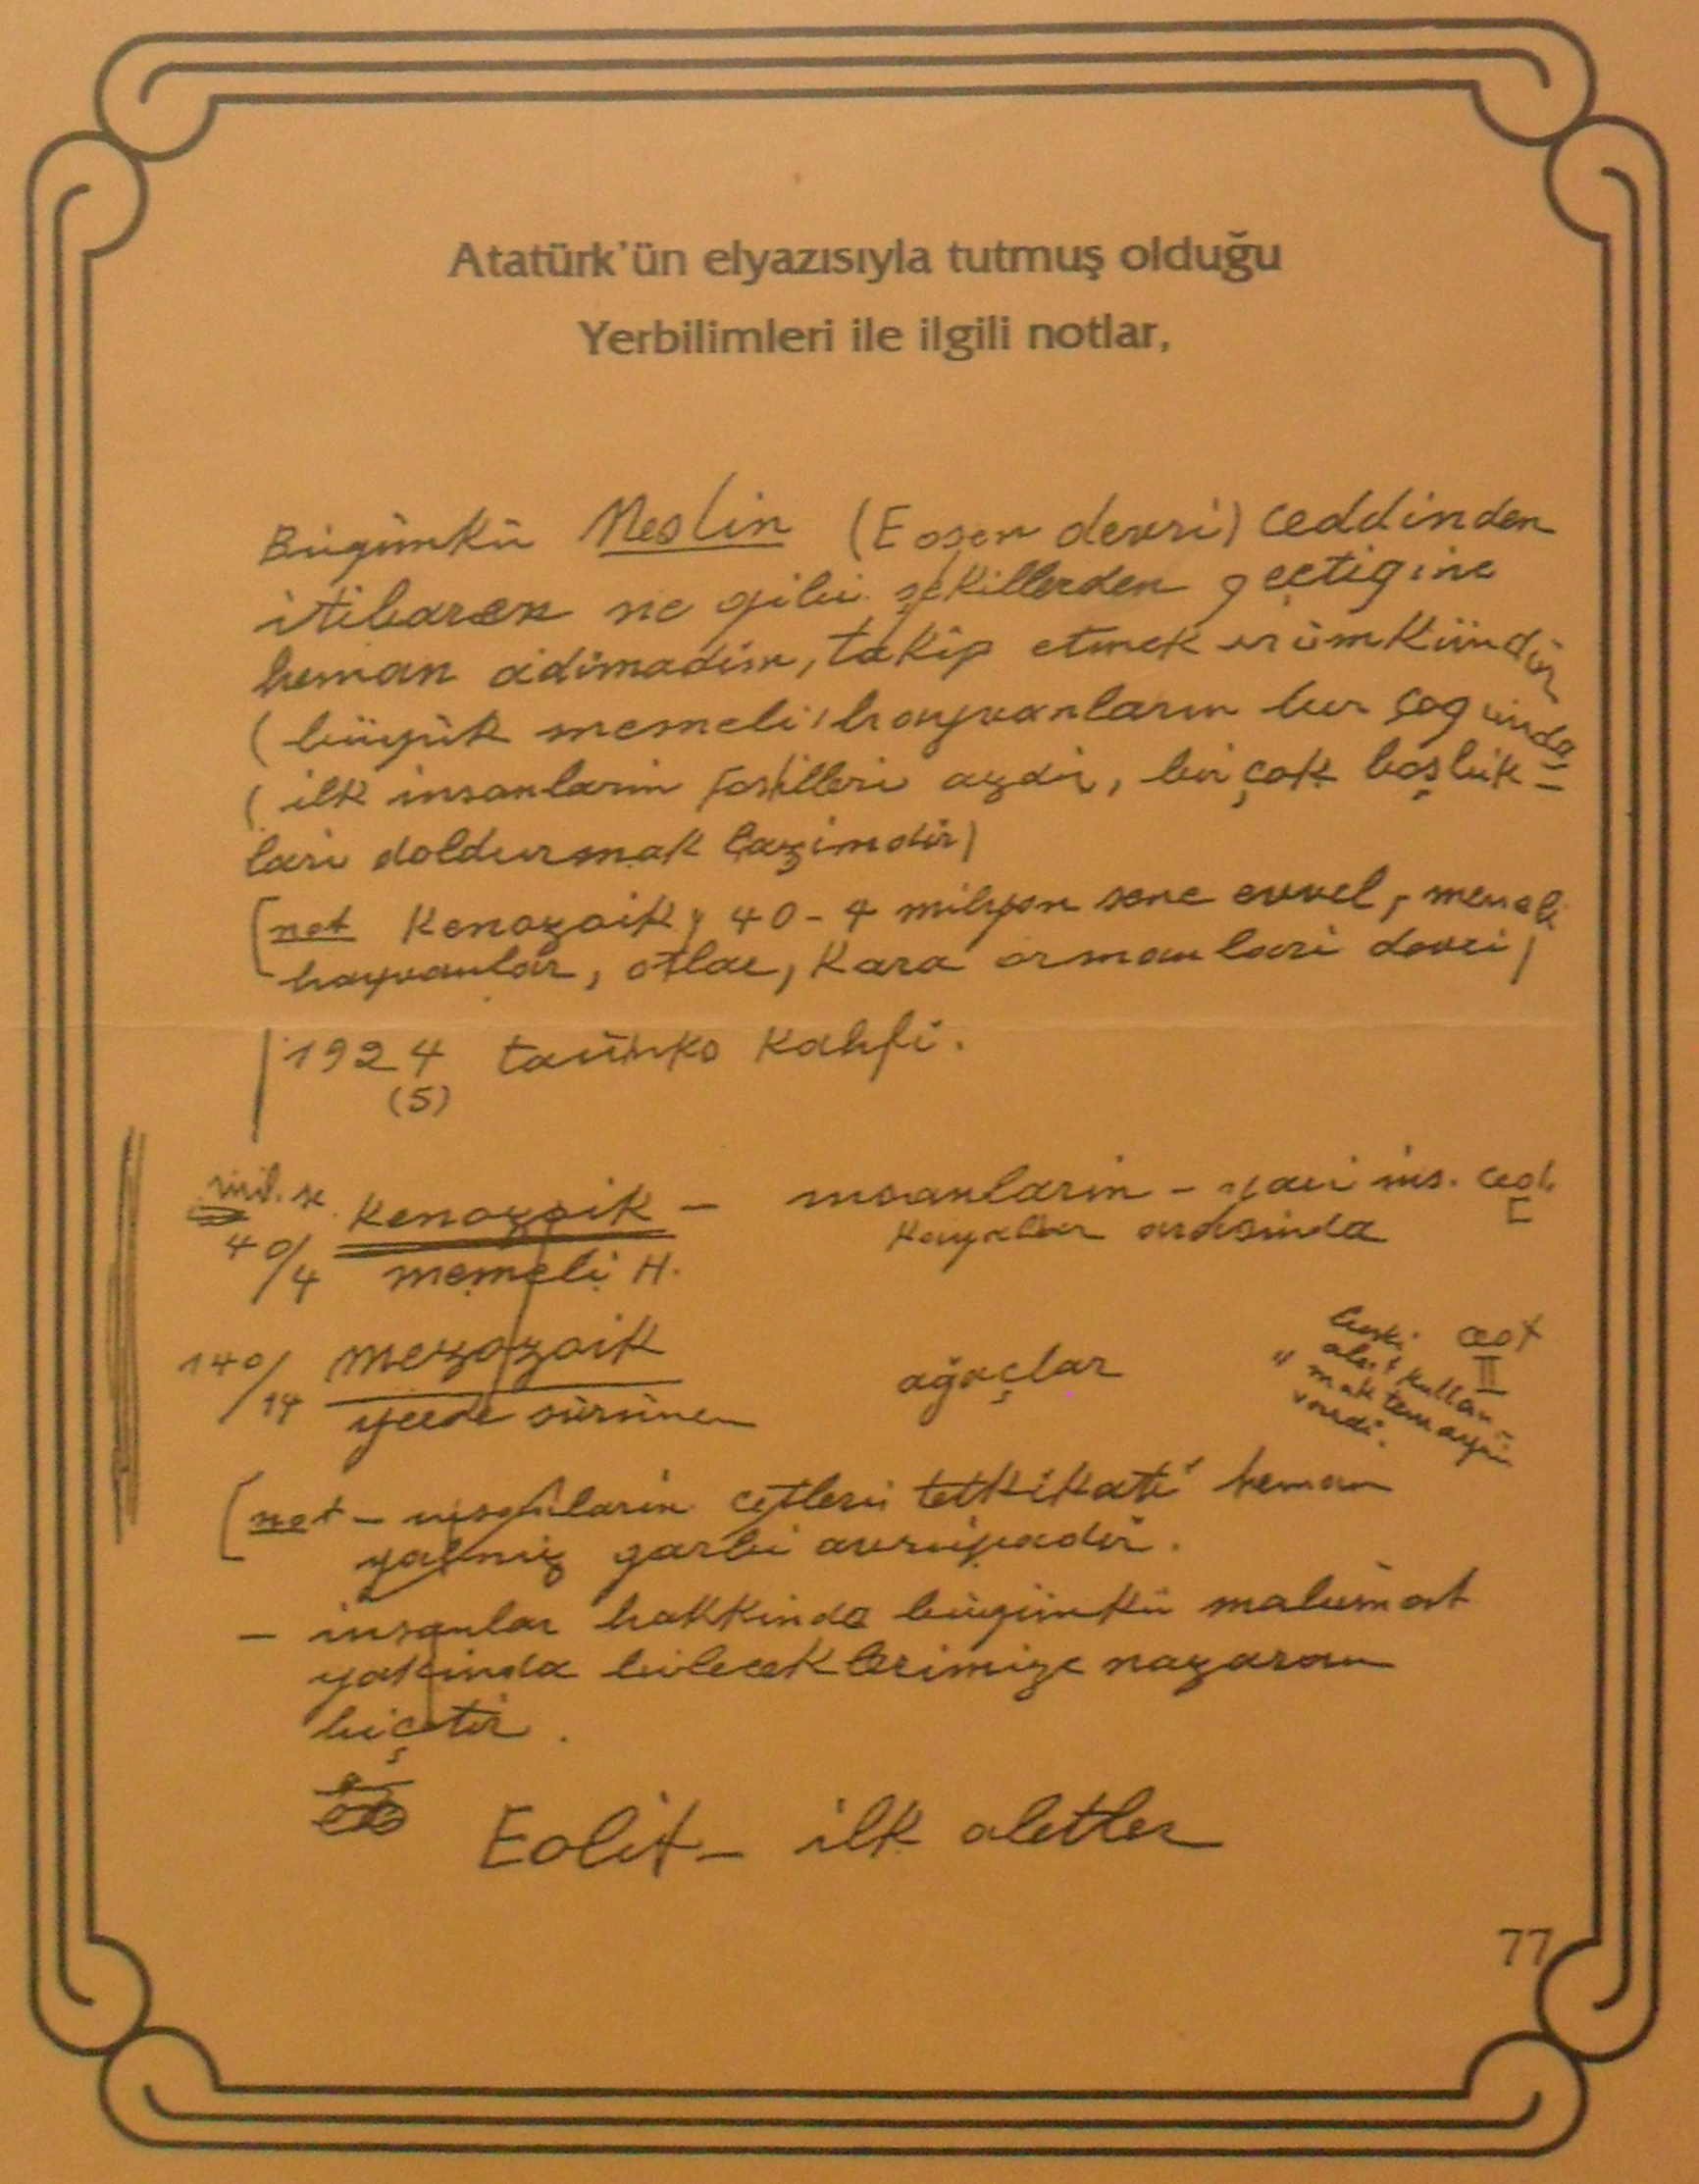 Atatürk'ün elyazısıyla tutmuş olduğu
Yerbilimleri ile ilgili notlar,
Bugünkü Neslin (Eosen devri) ceddinden
itibaren ne gibi şekillerden geçtigine
heman adimadim, takip etmek mümkündür
(büyük memeli hayvanların bir çoğunda
(ilk insanlarin fosilleri azdir, bir çok boşluk=
lari doldurmak lazimdir)
[not Kenozoik, 40-4 milyon sene evvel, memeli
hayvanlar, otlar, Kara ormanlari devri)
1924 Kahfi.
(5)
mil. se. Kenozoik - insanların - yani ins. ced.
40/4 memeli H. arasinda
I
140/14 mezozoik ağaçlar
yerde sürünen
cet
II
alet kullan-
mak temayü
vardi.
[not - insanların cetleri tetkikati heman
yalniz garbi avrupadir.
- insanlar hakkinda bugünkü malumat
yakinda bileceklerimize nazaran
hiçtir.
Eolit - ilk aletler
77